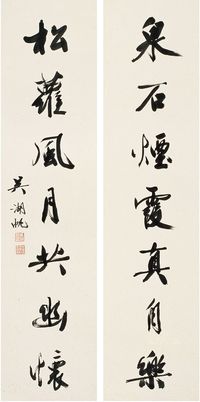 泉石煙霞真自樂
松蘿風月共幽懷
吳湖帆